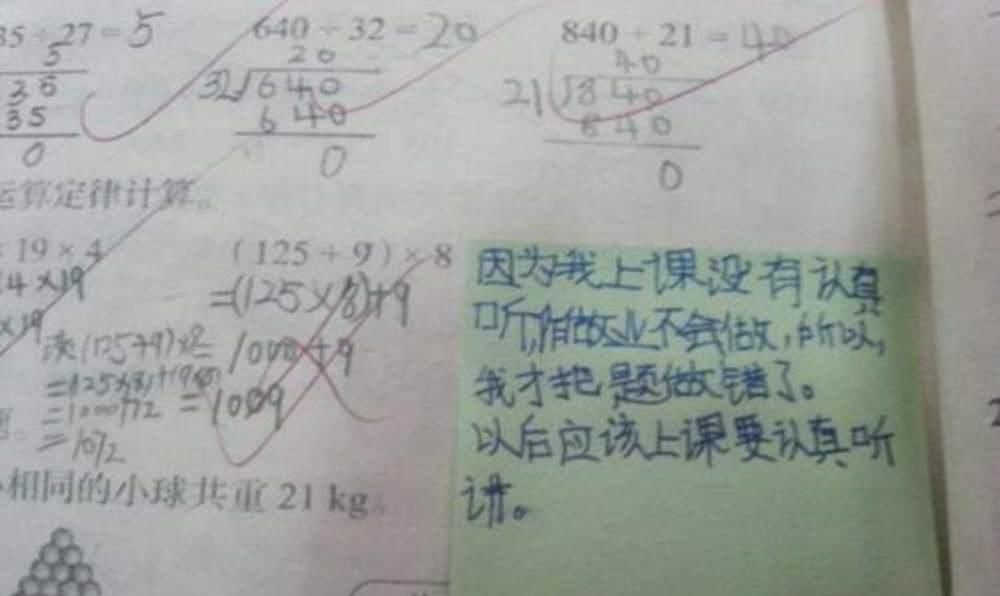 35 ÷ 27 = 5
5
35
35
0
640 ÷ 32 = 20
20
32 640
640
0
840 ÷ 21 = 40
40
21 840
840
0
运算定律计算。
19 × 4
4 × 19
× 19
(125 + 9) × 8
=(125×8)+9
1000+9
=1009
(125+9)×8
=1000+72
=1072
相同的小球共重 21 kg。
因为我上课没有认真
听,作业不会做,所以,
我才把题做错了。
以后应该上课要认真听
讲。